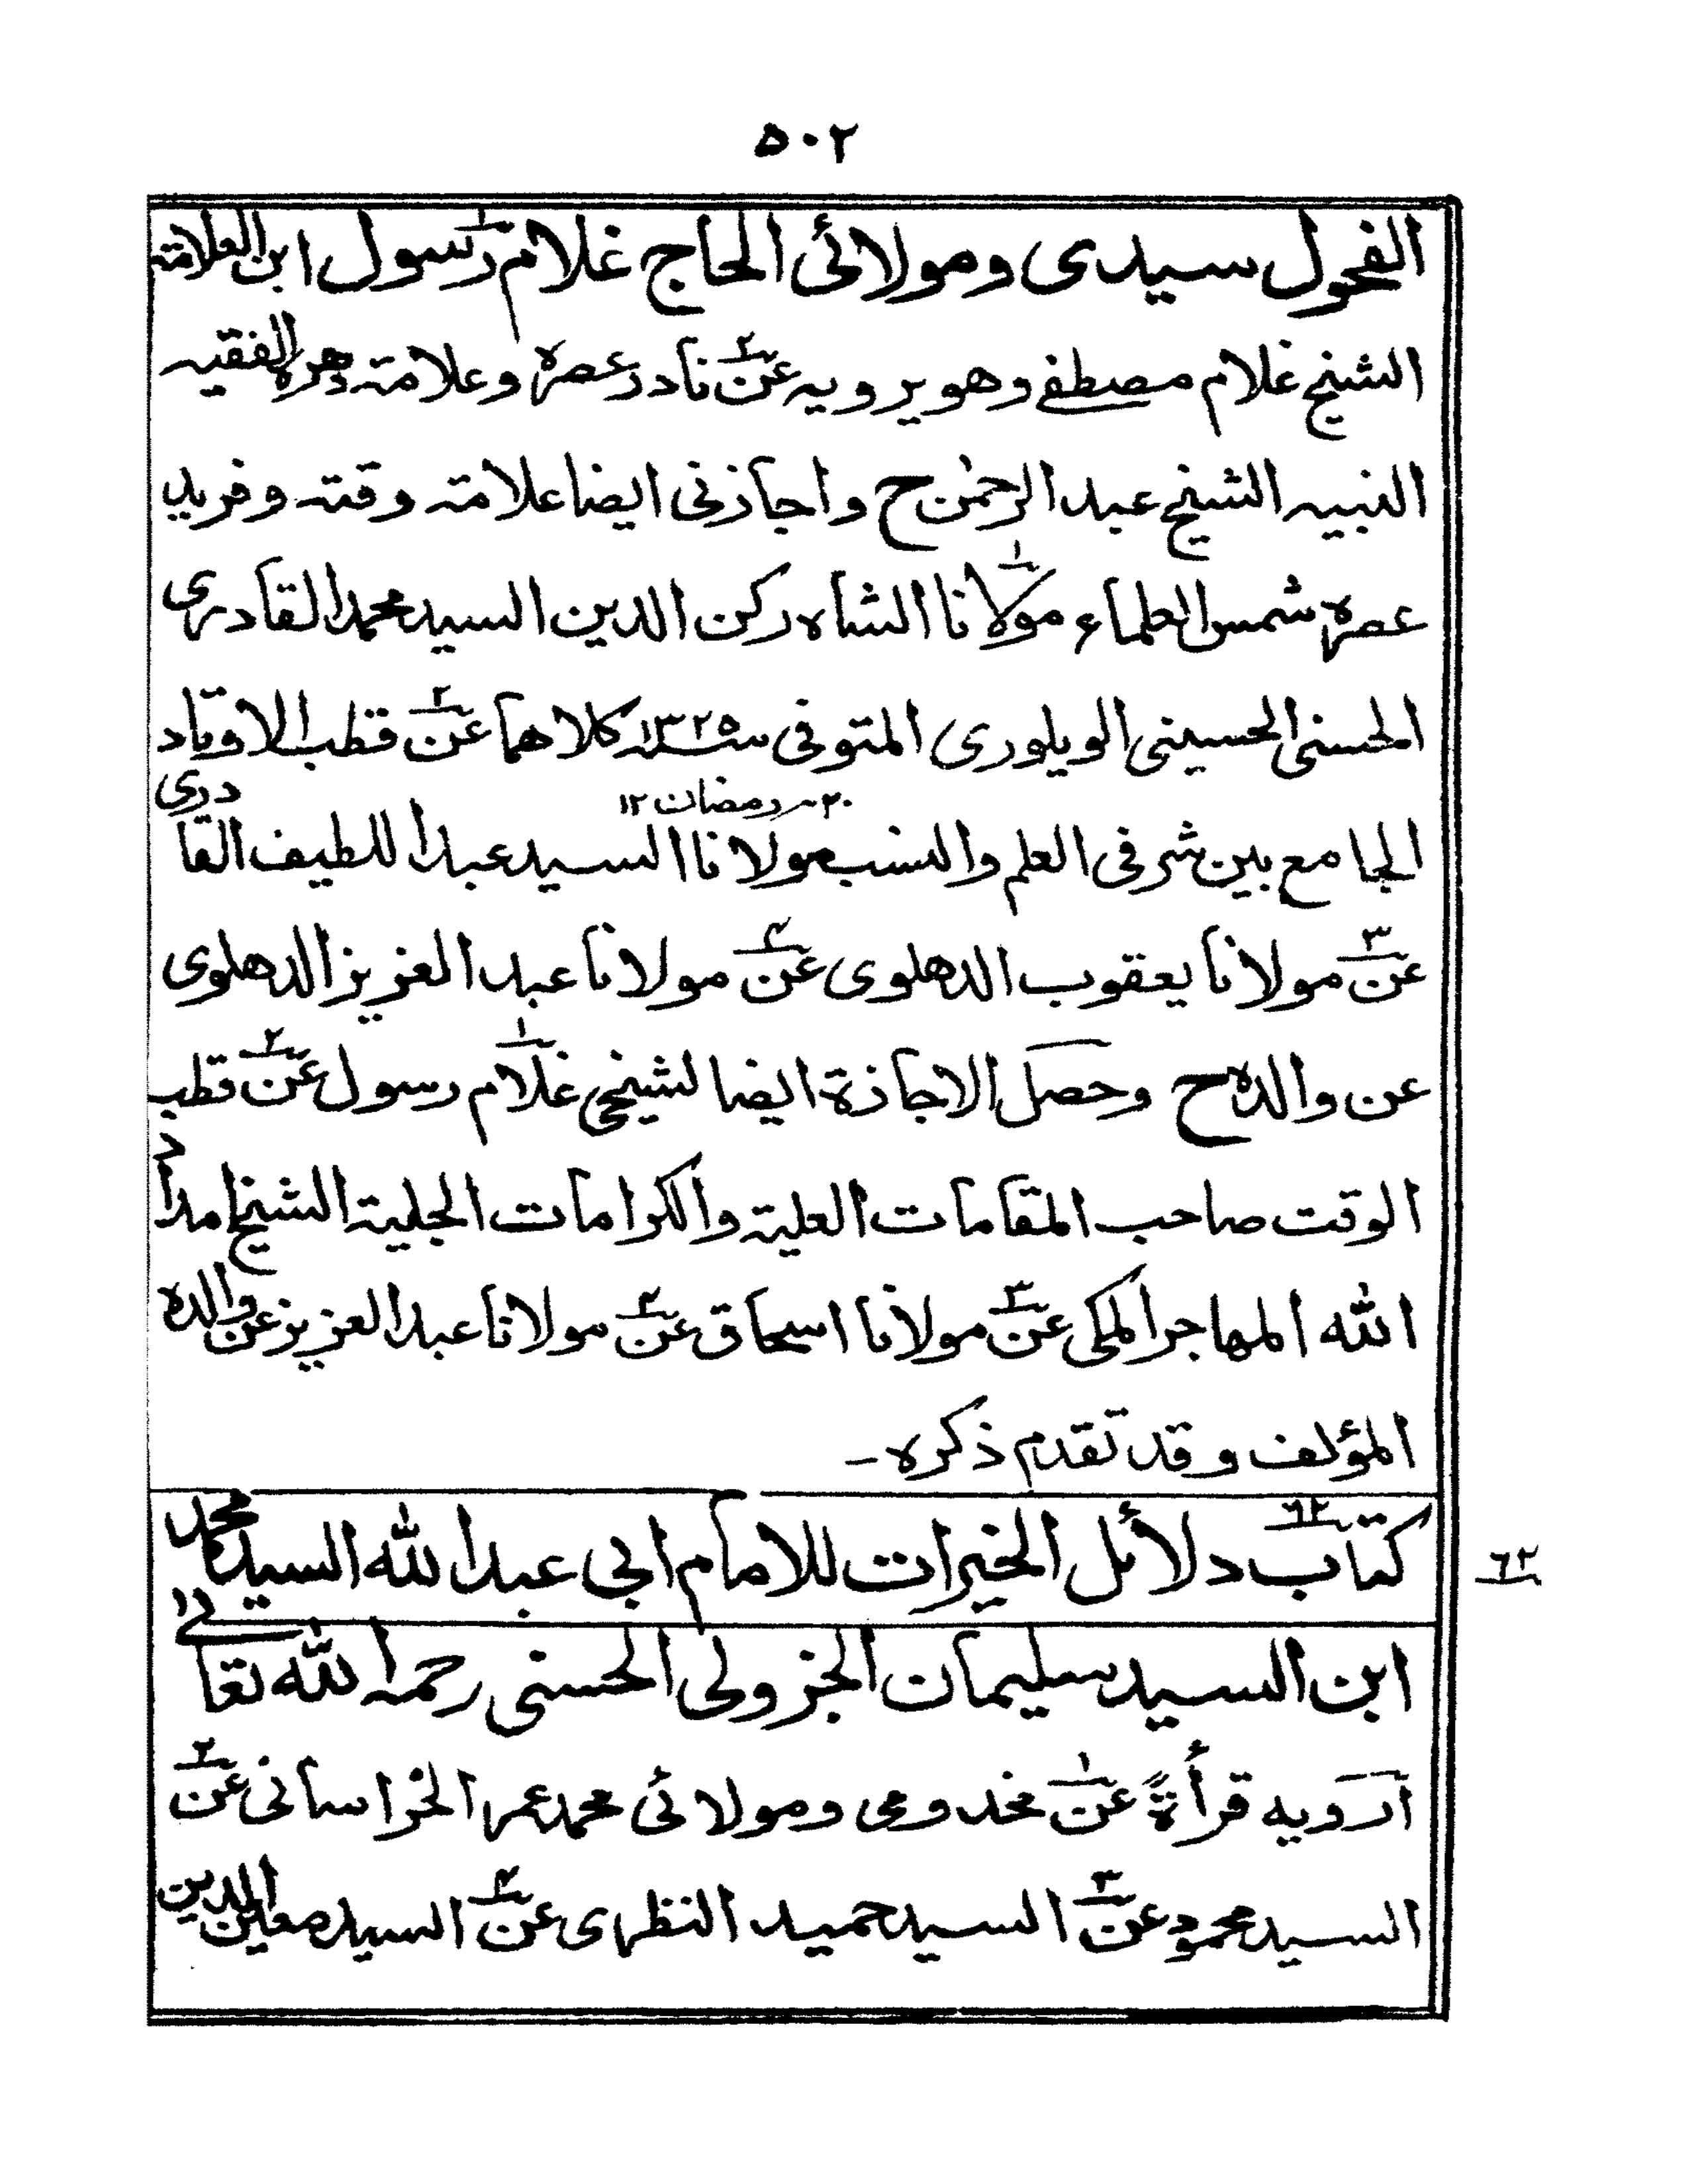 ٥٠٢
الفحول سيدى ومولائى الحاج غلام رسول ابن العلامة
الشيخ غلام مصطفى وهو يرويه عن نادر عصره وعلامة دهره الفقيه
النبيه الشيخ عبد الرحمٰن ح واجازنى ايضا علامة وقته وفريد
عصره شمس العلماء مولانا الشاه ركن الدين السيد محمد القادرى
الحسنى الحسينى الويلورى المتوفى سنة ١٣٢٥ كلاهما عن قطب الاوتاد
٢٠ رمضان ١٢
الجامع بين شرفى العلم والنسب مولانا السيد عبد اللطيف القادرى
عن مولانا يعقوب الدهلوى عن مولانا عبد العزيز الدهلوى
عن والده ح وحصل الاجازة ايضا لشيخى غلام رسول عن قطب
الوقت صاحب المقامات العلية والكرامات الجلية الشيخ امداد
الله المهاجر المكى عن مولانا اسحاق عن مولانا عبد العزيز عن والده
المؤلف وقد تقدم ذكره -
٦٢
كتاب دلائل الخيرات للامام ابى عبد الله السيد محمد
٦٢
ابن السيد سليمان الجزولى الحسنى رحمه الله تعالى
أرويه قرأةً عن مخدومى ومولائى محمد عمر الخراسانى عن
السيد محمود عن السيد حميد النظرى عن السيد معين الدين